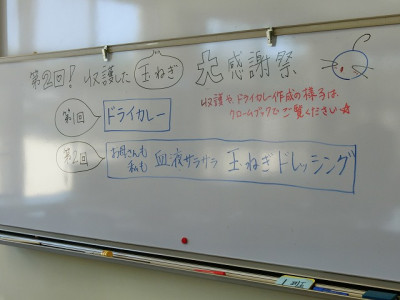 第2回! 収護した 玉ねぎ 大感謝祭
収護や、ドライカレー作成の様子は
クロームブックでご覧ください☆
第1回 ドライカレー
第2回 お母さんも 私も 血液サラサラ 玉ねぎドレッシング
1班